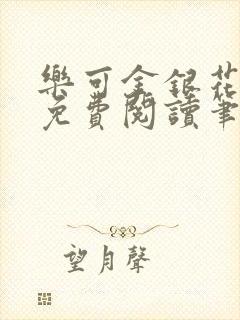 樂可金銀花
免費閱讀筆
望月聲